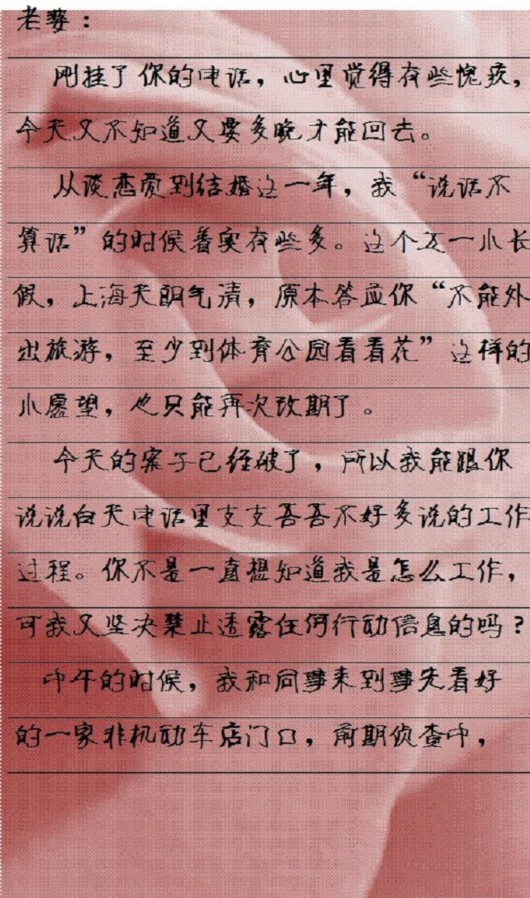 老婆：
刚挂了你的电话，心里觉得有些愧疚，
今天又不知道又要多晚才能回去。
从谈恋爱到结婚这一年，我“说话不
算话”的时候着实有些多。这个五一小长
假，上海天朗气清，原本答应你“不能外
出旅游，至少到体育公园看看花”这样的
小愿望，也只能再次改期了。
今天的案子已经破了，所以我能跟你
说说白天电话里支支吾吾不好多说的工作
过程。你不是一直想知道我是怎么工作，
可我又坚决禁止透露任何行动信息的吗？
中午的时候，我和同事来到事先看好
的一家非机动车店门口，前期侦查中，